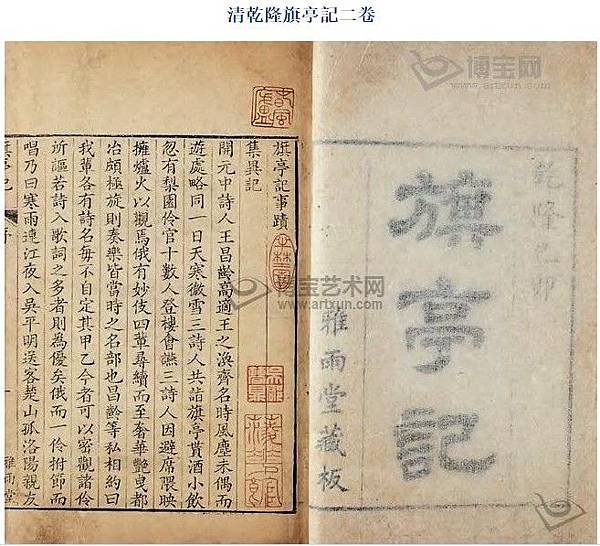 清乾隆旗亭記二卷
博宝网
www.artxun.com
乾隆己卯
旗亭記
雅雨堂藏板
旗亭記事蹟
集異記
開元中詩人王昌齡高適王之渙齊名時風塵未偶而
遊處略同一日天寒微雪三詩人共詣旗亭貰酒小飲
忽有梨園伶官十數人登樓會讌三詩人因避席隈映
擁爐火以觀焉俄有妙伎四輩尋續而至奢華艷曳都
冶頗極旋則奏樂皆當時之名部也昌齡等私相約曰
我輩各有詩名每不自定其甲乙今者可以密觀諸伶
所謳若詩入歌詞之多者則為優矣俄而一伶拊節而
唱乃曰寒雨連江夜入吳平明送客楚山孤洛陽親友
旗亭記 序 一 雅雨堂
博宝艺术网
www.artxun.com